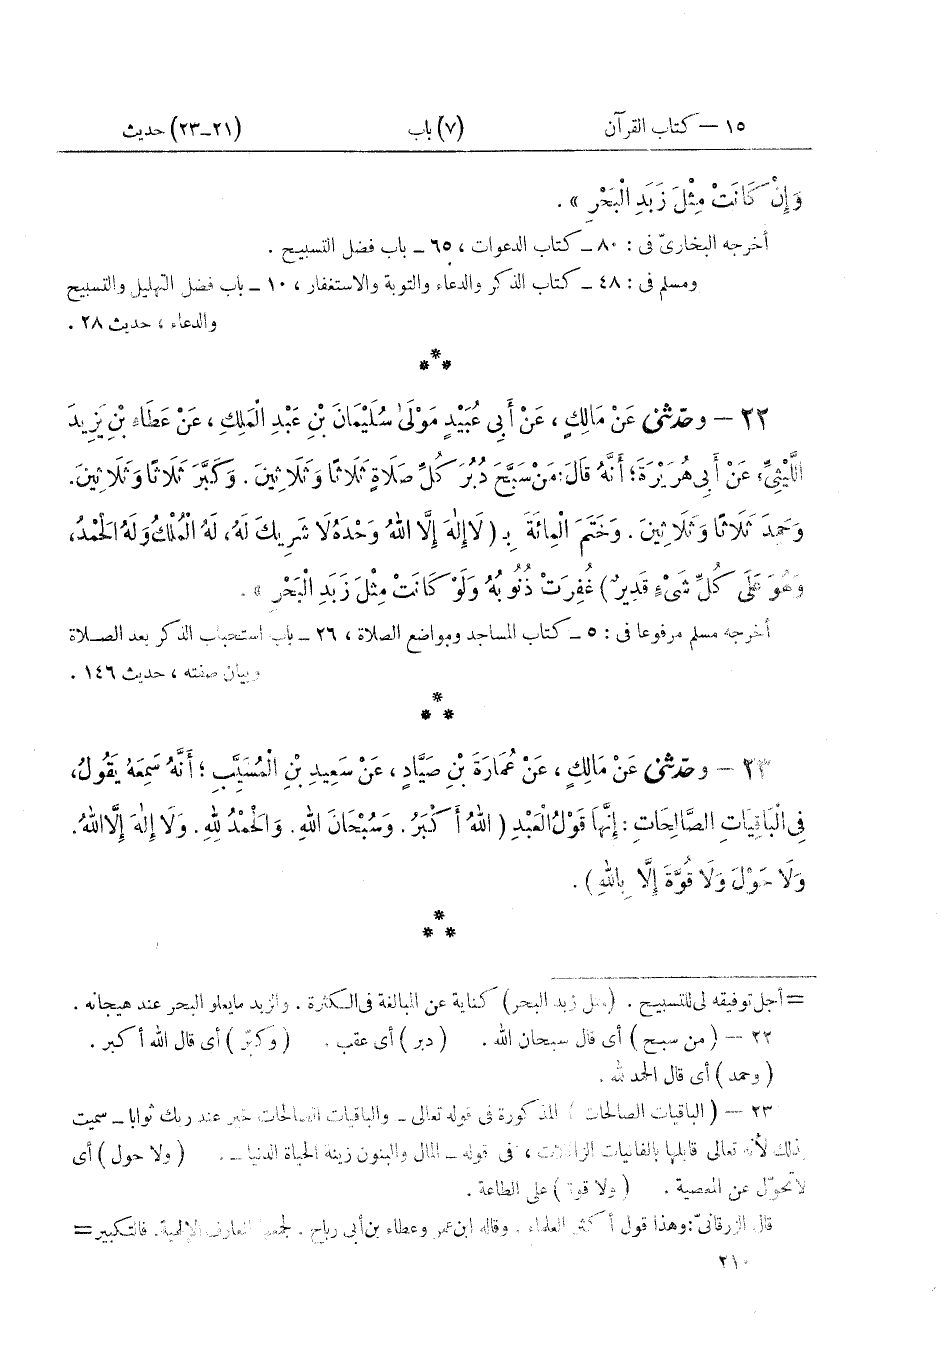 ١٥ — كتاب القرآن (٧) باب (٢١–٢٣) حديث
وَإِنْ كَانَتْ مِثْلَ زَبَدِ الْبَحْرِ » .
أخرجه البخارىّ فى : ٨٠ ــ كتاب الدعوات ، ٦٥ ــ باب فضل التسبيح .
ومسلم فى : ٤٨ ــ كتاب الذكر والدعاء والتوبة والاستغفار ، ١٠ ــ باب فضل التهليل والتسبيح
والدعاء ، حديث ٢٨ .
***
٢٢ — وحدّثنى عَنْ مَالِكٍ ، عَنْ أَبِي عُبَيْدٍ مَوْلَىٰ سُلَيْمَانَ بْنِ عَبْدِ الْمَلِكِ ، عَنْ عَطَاءِ بْنِ يَزِيدَ
اللَّيْثِيِّ، عَنْ أَبِي هُرَيْرَةَ؛ أَنَّهُ قَالَ: مَنْ سَبَّحَ دُبُرَ كُلِّ صَلَاةٍ ثَلَاثًا وَثَلَاثِينَ . وَكَبَّرَ ثَلَاثًا وَثَلَاثِينَ.
وَحَمِدَ ثَلَاثًا وَثَلَاثِينَ . وَخَتَمَ الْمِائَةَ بِـ ( لَا إِلٰهَ إِلَّا اللهُ وَحْدَهُ لَا شَرِيكَ لَهُ، لَهُ الْمُلْكُ وَلَهُ الْحَمْدُ،
وَهُوَ عَلَى كُلِّ شَيْءٍ قَدِيرٌ) غُفِرَتْ ذُنُوبُهُ وَلَوْ كَانَتْ مِثْلَ زَبَدِ الْبَحْرِ » .
أخرجه مسلم مرفوعا فى : ٥ ــ كتاب المساجد ومواضع الصلاة ، ٢٦ ــ باب استحباب الذكر بعد الصلاة
وبيان صفته ، حديث ١٤٦ .
***
٢٣ — وحدّثنى عَنْ مَالِكٍ ، عَنْ عُمَارَةَ بْنِ صَيَّادٍ ، عَنْ سَعِيدِ بْنِ الْمُسَيَّبِ ؛ أَنَّهُ سَمِعَهُ يَقُولُ،
فِي الْبَاقِيَاتِ الصَّالِحَاتِ : إِنَّهَا قَوْلُ الْعَبْدِ ( اللهُ أَكْبَرُ . وَسُبْحَانَ اللهِ. وَالْحَمْدُ لِلهِ. وَلَا إِلٰهَ إِلَّا اللهُ.
وَلَا حَوْلَ وَلَا قُوَّةَ إِلَّا بِاللهِ ) .
***
= أجل توفيقه لى للتسبيح . (مثل زبد البحر) كناية عن المبالغة فى الكثرة . والزبد مايعلو البحر عند هيجانه .
٢٢ — (من سبح) أى قال سبحان الله . (دبر) أى عقب . (وكبّر) أى قال الله أكبر .
(وحمد) أى قال الحمد لله .
٢٣ — (الباقيات الصالحات) المذكورة فى قوله تعالى ــ والباقيات الصالحات خير عند ربك ثوابا ــ سميت
بذلك لأنه تعالى قابلها بالفانيات الزائلات ، فى قوله ــ المال والبنون زينة الحياة الدنيا ــ . (ولا حول) أى
لا تحوّل عن المعصية . (ولا قوة) على الطاعة .
قال الزرقانىّ : وهذا قول أكثر العلماء . وقاله ابن عمر وعطاء بن أبى رباح . لجمعها المعارف الإلهية. فالتكبير =
٢١٠